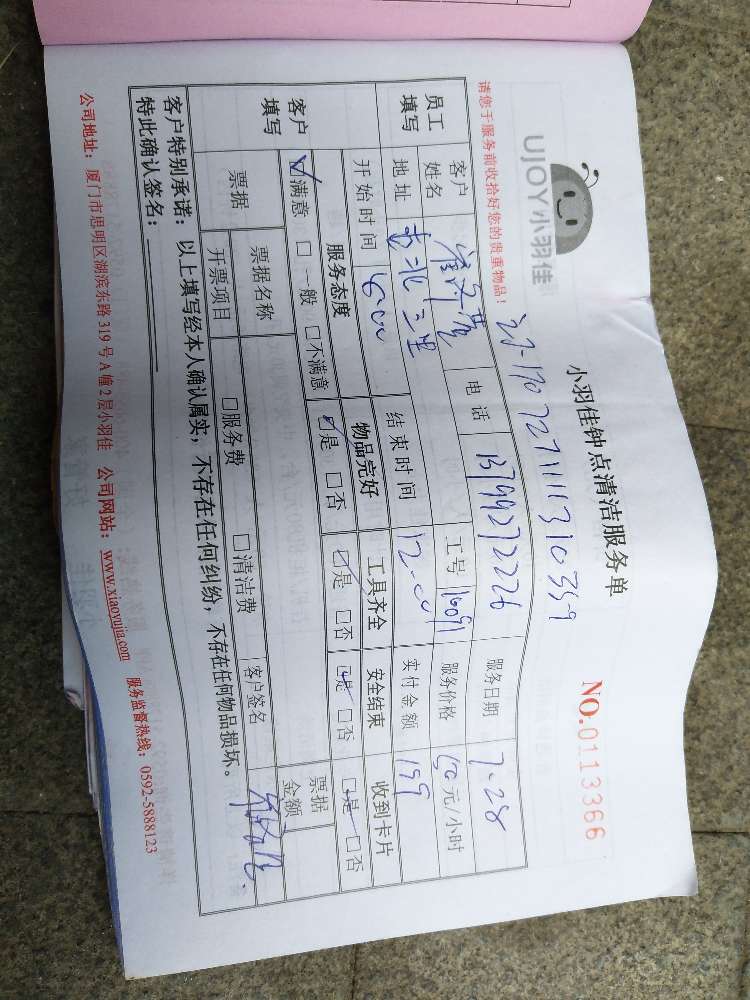 UJOY小羽佳
小羽佳钟点清洁服务单
NO.0113366
请您于服务前收拾好您的贵重物品！
员工填写
客户姓名
电话 13799272226
服务日期 7.28
地址 古北三里
工号 16091
服务价格 50元/小时
开始时间
结束时间 12:00
实付金额 199
客户填写
服务态度 物品完好 工具齐全 安全结束 收到卡片
☑满意 □一般 □不满意 ☑是 □否 ☑是 □否 ☑是 □否 ☑是 □否
票据
票据名称
票据金额
开票项目 □服务费 □清洁费 客户签名
客户特别承诺：以上填写经本人确认属实，不存在任何纠纷，不存在任何物品损坏。
特此确认签名：
公司地址：厦门市思明区湖滨东路319号A幢2层小羽佳 公司网站：www.xiaoyujia.com 服务监督热线：0592-5888123